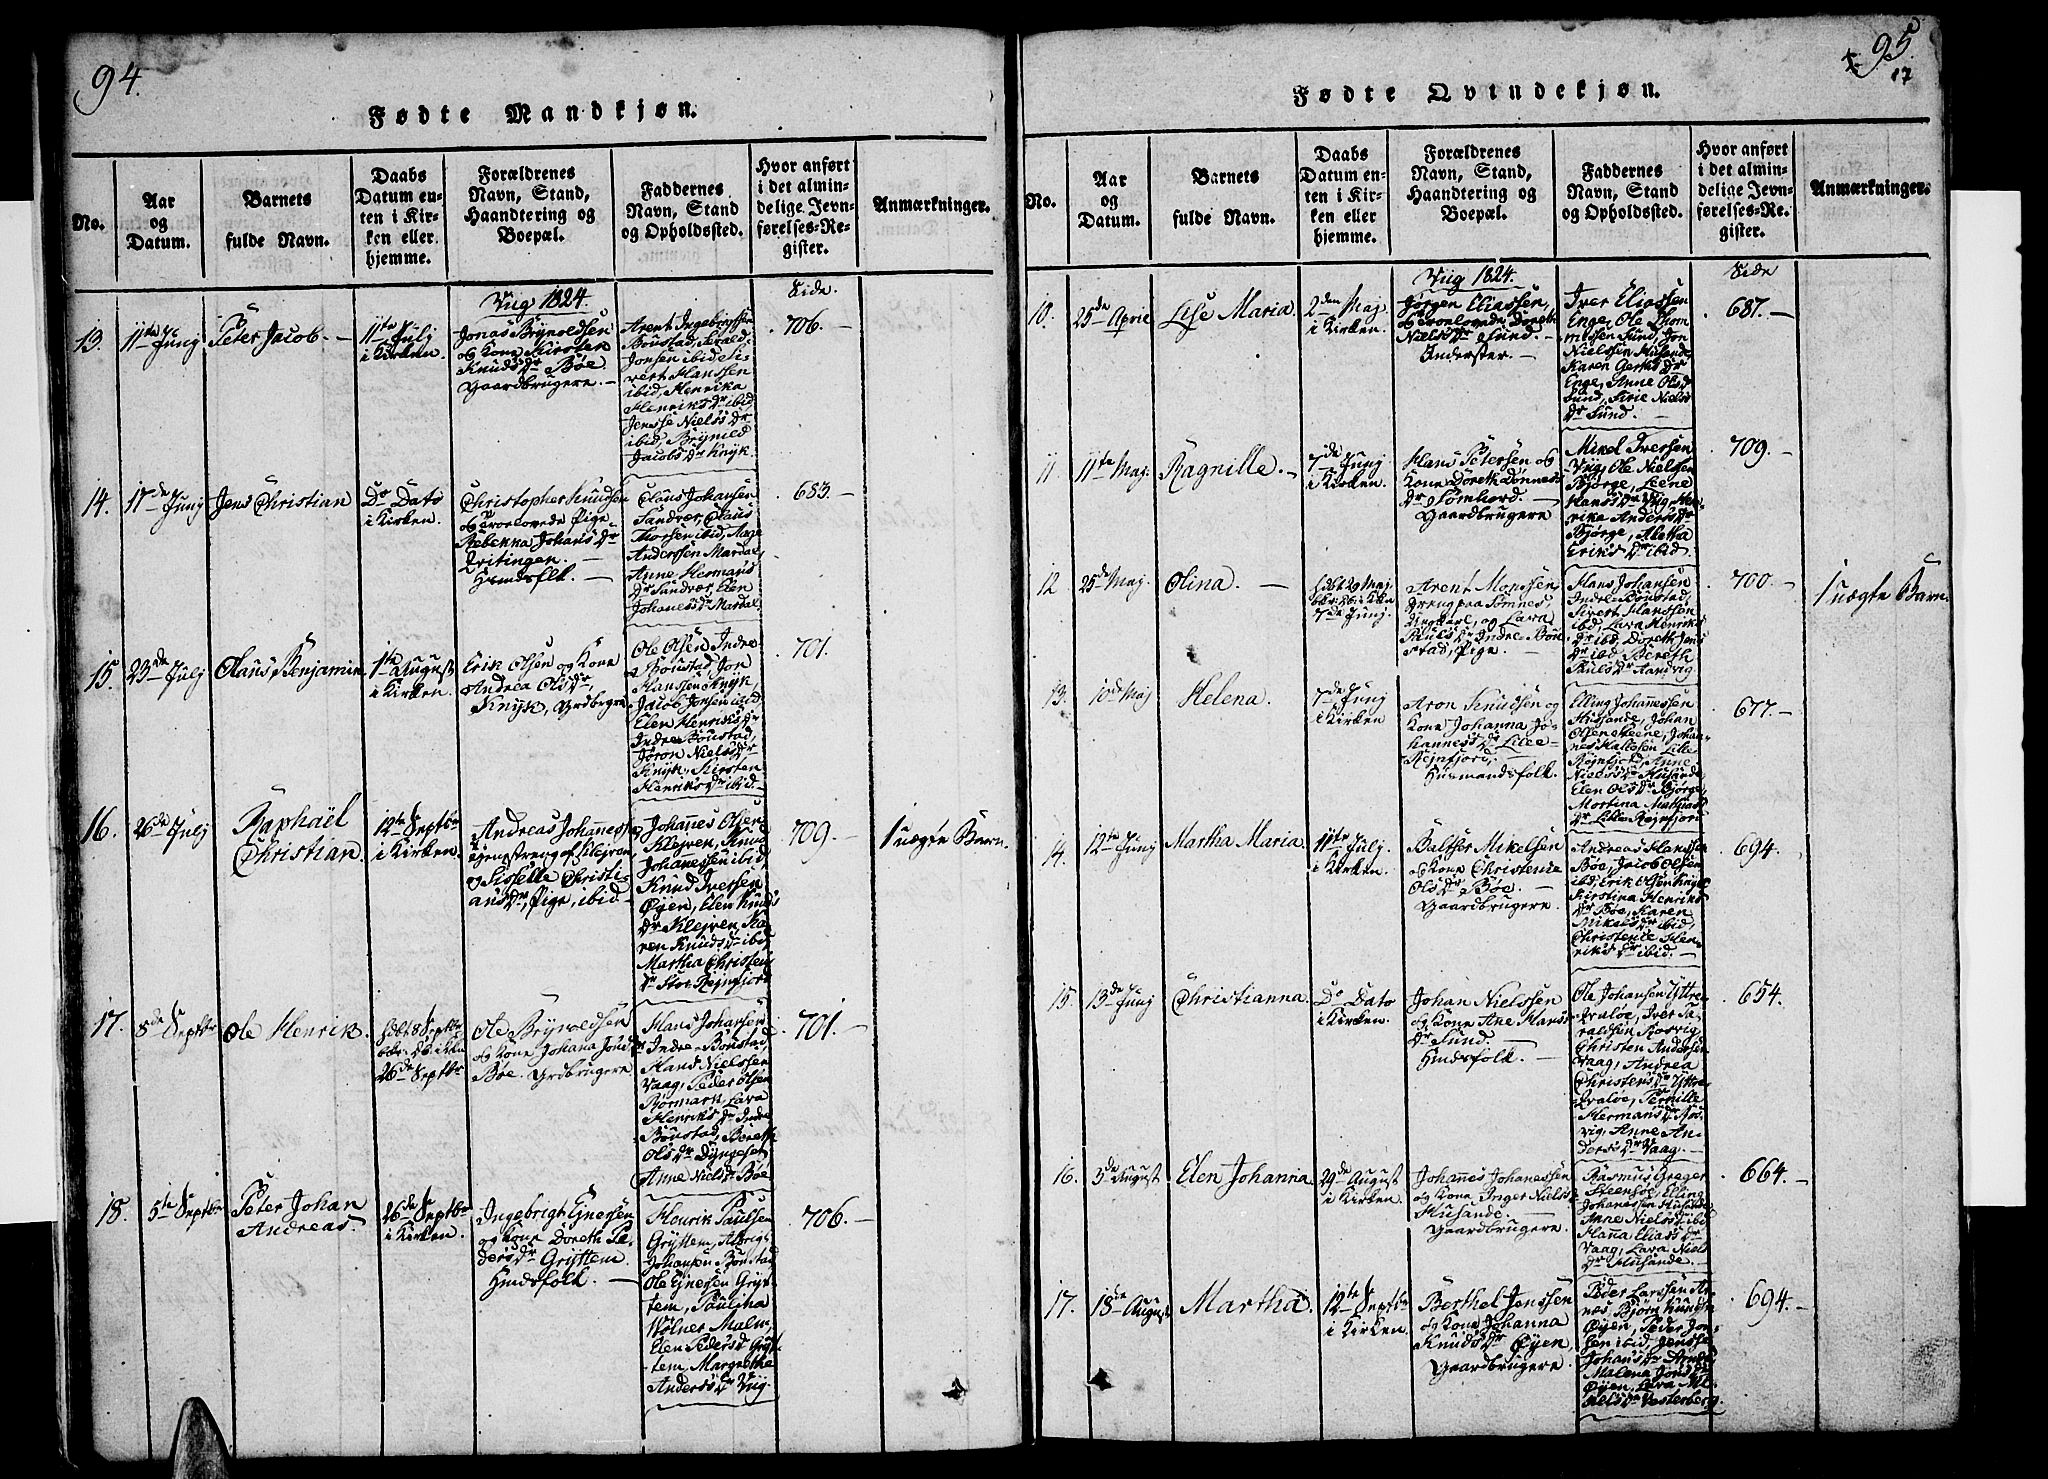 94.
Fødte Mandkjøn.
No.
Aar
og
Datum.
Barnets
fulde Navn.
Daabs
Datum en-
ten i Kir-
ken eller
hjemme.
Forældrenes
Navn, Stand,
Haandtering og
Boepæl.
Faddernes
Navn, Stand
og Opholdssted.
Hvor anført
i det almin-
delige Jevn-
førelses-Re-
gister.
Anmærkninger.
Vlig 1824.
Side.
13.
11te Junj
Peter Jacob.
11te Julj
i Kirken.
Jonas Brynoldsen
og Kone Kirsten
Knuds Dr Bøe
Gaardbrugere.
Arent Ingebrigtsen
Boustad, Harald
Jonsen ibid, Si-
vert Hanssen
ibid, Henrika
Henriks Dr ibid
Jensse Niels Dr
ibid, Brynild
Jacobs Dr Knyk.
706.
14.
17de Junj
Jens Christian
Do Dato
i Kirken.
Christopher Knudsen
og Trolovede Pige
Rebekka Johans Dr
Qvitingen.
Husmdsflk.
Claus Johansen
Sandvær, Claus
Thorsen ibid, Mage
Anderssen Mardal,
Anne Hermans
Dr Sandvær, Elen
Johanes Dr Mardal.
683.
15.
23de Julj
Claus Benjamin
1te August
i Kirken.
Erik Olsen og Kone
Andrea Ols Dr
Knyk, Grdbrgre
Ole Olsen Indre
Boustad, Jon
Hanssen Knyk,
Jacob Jonsen ibid,
Elen Henriks Dr
Indre Boustad,
Joron Niels Dr
Knyk, Kirsten
Henriks Dr ibid.
701.
16.
26de Julj
Raphaël
Christian.
12te Septbr
i Kirken.
Andreas Johannessen
Tjenstdreng af Klejven
og Sisselle Christi-
ans Dr, Pige, ibid
Johannes Olsen
Klejven, Knud
Johanessen ibid
Knud Iversen
Øyen, Elen Knuds
Dr Klejven, Ka-
ren Knuds Dr ibid
Martha Christens
Dr Stor Rejnfjord
709.
1 uægte Barn.
17.
8de Septbr
Ole Henrik.
hdbt 8 Septbr
bekr: db: i Kkn
26de Septbr
Ole Brynoldsen
og Kone Johana Jons Dr
Bøe. Grdbrugere
Hans Johansen
Indre Boustad,
Hans Nielssen
Vaag, Peder Olsen
Bormark, Lava
Henriks Dr Indre
Boustad, Bereth
Ols Dr Dyngeset
Anne Niels Dr Bøe
701.
18.
5te Septbr
Peter Johan
Andreas
26de Septbr
i Kirken.
Ingebrigt Ejnersen
og Kone Doreth Pe-
ders Dr Gryttem.
Hmdsfolk.
Henrik Paulsen
Gryttem, Albrigt
Johansen Boustad
Ole Einersen Gryt-
tem, Paulina
Volner Malm,
Elen Peders Dr Gryt-
tem, Margrethe
Anders Dr Vlig.
706.
95.
17
Fødte Qvindekjøn.
No.
Aar
og
Datum.
Barnets
fulde Navn.
Daabs
Datum en-
ten i Kir-
ken eller
hjemme.
Forældrenes
Navn, Stand,
Haandtering og
Boepæl.
Faddernes
Navn, Stand
og Opholdssted.
Hvor anført
i det almin-
delige Jevn-
førelses-Re-
gister.
Anmærkninger.
Vlig 1824.
Side
10.
25de April
Lise Maria.
2den Maj
i Kirken.
Jørgen Eliassen,
og Trolovede Doreth
Niels Dr Sund.
Inderster.
Iver Eliassen
Enge, Ole Thom-
messen Sund, Jon
Nielssen Husande,
Karen Gerts Dr
Enge, Anne Ols Dr
Sund, Sirie Niels
Dr Sund.
687.
11.
11te Maj.
Ragnille.
7de Junj
i Kirken.
Hans Petersen og
Kone Doreth Donnes
Dr Sømhord.
Gaardbrugere
Mikel Iversen
Vlig, Ole Nielsen
Bjørge, Leene
Hans Dr Vlig, Hen-
rika Anders Dr
Bjørge, Aletha
Eriks Dr ibid.
709.
12.
25de Maj.
Olina.
hdbt 29 Maj
bkr: db: i Kkn
7de Junj.
Arent Monssen
Dreng paa Sømnes,
Ungkarl, og Lava
Pauls Dr Indre Bou-
stad, Pige.
Hans Johansen
Indre Boustad,
Sivert Hanssen
ibd, Lava Henriks
Dr ibd, Doreth Jens
Dr ibd, Bereth
Pauls Dr Sandvig.
700.
1 uægte Barn.
13.
10de Maj
Helena.
7de Junj
i Kirken
Aron Knudsen og
Kone Johanna Jo-
hannes Dr Lille-
Rejnfjord,
Husmandsfolk.
Elling Johanessen
Husande, Johan
Olsen Steene, Johan-
nes Hallesen Lille
Rejnfjord, Anne
Niels Dr Husande,
Elen Ols Dr Bjørge,
Mortina Mathias
Dr Lille Rejnfjord
677.
14.
12te Junj
Martha Maria
11te Julj.
i Kirken.
Baltser Mikelsen
og Kone Christense
Ols Dr Bøe.
Gaardbrugere.
Andreas Hanssen
Bøe, Jacob Olsen
ibd, Erik Olsen Knyk
Kirstina Henriks
Dr Bøe, Karen
Mikels Dr ibid,
Christense Hen-
riks Dr ibid.
694.
15.
13de Junj
Christianna.
Do Dato
i Kirken.
Johan Nielssen
og Kone Ane Hans
Dr Sund.
Hmdsfolk.
Ole Johansen Yttre
Qvaløe, Iver Ha-
raldsen Rosvig,
Christen Andersen
Vaag, Andrea
Christens Dr Yttre-
Qvaløe, Pernille
Hermans Dr Ros-
vig, Anne An-
ders Dr Vaag.
654.
16.
3de August
Elen Johanna.
29de August
i Kirken.
Johannes Johanessen
og Kone Inger Niels Dr
Husande.
Gaardbrugere.
Rasmus Greger
Steensøe, Elling
Johanessen Husande
Anne Niels Dr ibid
Hanna Elias Dr
Vaag, Lava Niels
Dr Husande.
664.
17.
18de August
Martha.
12te Septbr
i Kirken.
Berthel Jenssen
og Kone Johanna
Knuds Dr Øyen,
Gaardbrugere.
Peder Larssen Aar-
nes, Bjørn Knudsen
Øyen, Peder Jon-
sen ibid, Jensse
Johans Dr Aarnes
Malena Jons Dr
Øyen, Lava Mi-
kels Dr Vesterberg.
694.